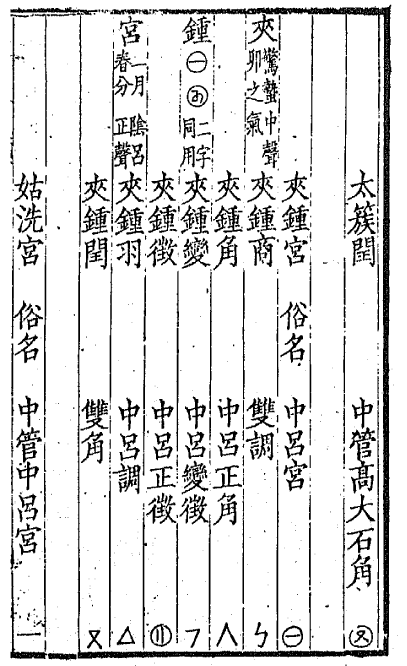 太簇閏 中管高大石角
夾鍾宮 俗名 中呂宮 ㊀
夾 驚蟄中聲 卯之氣 夾鍾商 雙調 ㄣ
夾鍾角 中呂正角 人
鍾 ㊀ 二字 同用 夾鍾變 中呂變徵 フ
夾鍾徵 中呂正徵 ⑪
宮 二月 陰呂 春分 正聲 夾鍾羽 中呂調 △
夾鍾閏 雙角 ㄡ
姑洗宮 俗名 中管中呂宮 一